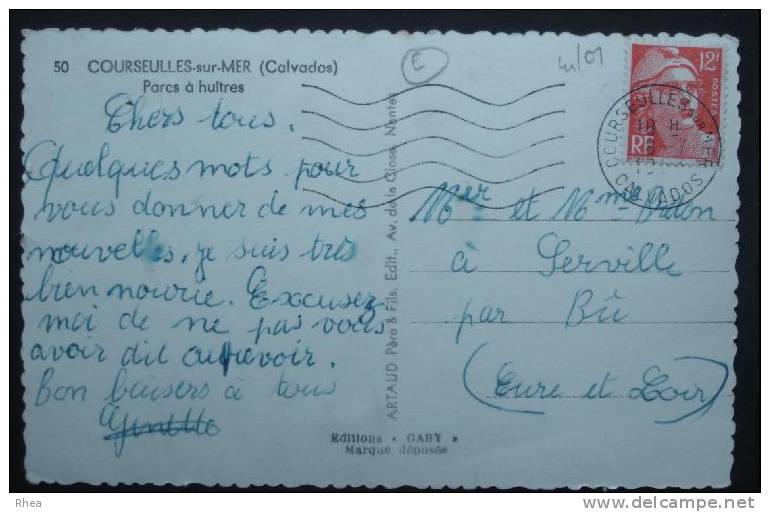 50 COURSEULLES-sur-MER (Calvados)
Parcs à huîtres
E
Chers tous.
Quelques mots pour
vous donner de mes
nouvelles, je suis très
bien nourie. Excusez
moi de ne pas vous
avoir dit aurevoir.
Bon baisers à tous
Ginette
ARTAUD Père & Fils, Edit., Av. de la Close, Nantes
Editions « GABY »
Marque déposée
12F
POSTES
RF
COURSEULLES SUR MER
18 H
CALVADOS
Mer et Mme
à Serville
par Bû
(Eure et Loir)
Rhea
delcampe.net